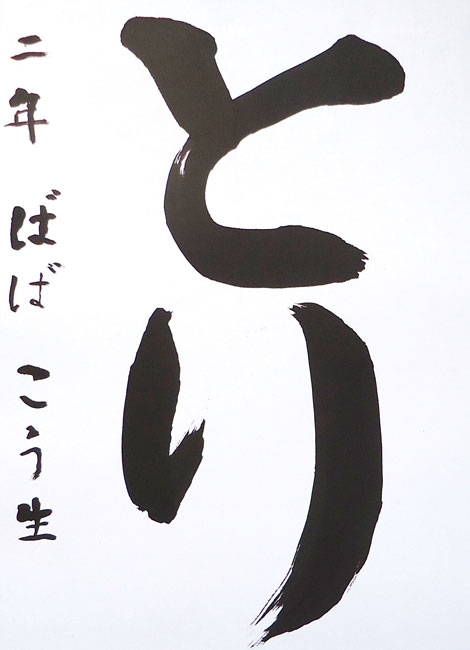 とり
二年 ばば こう生